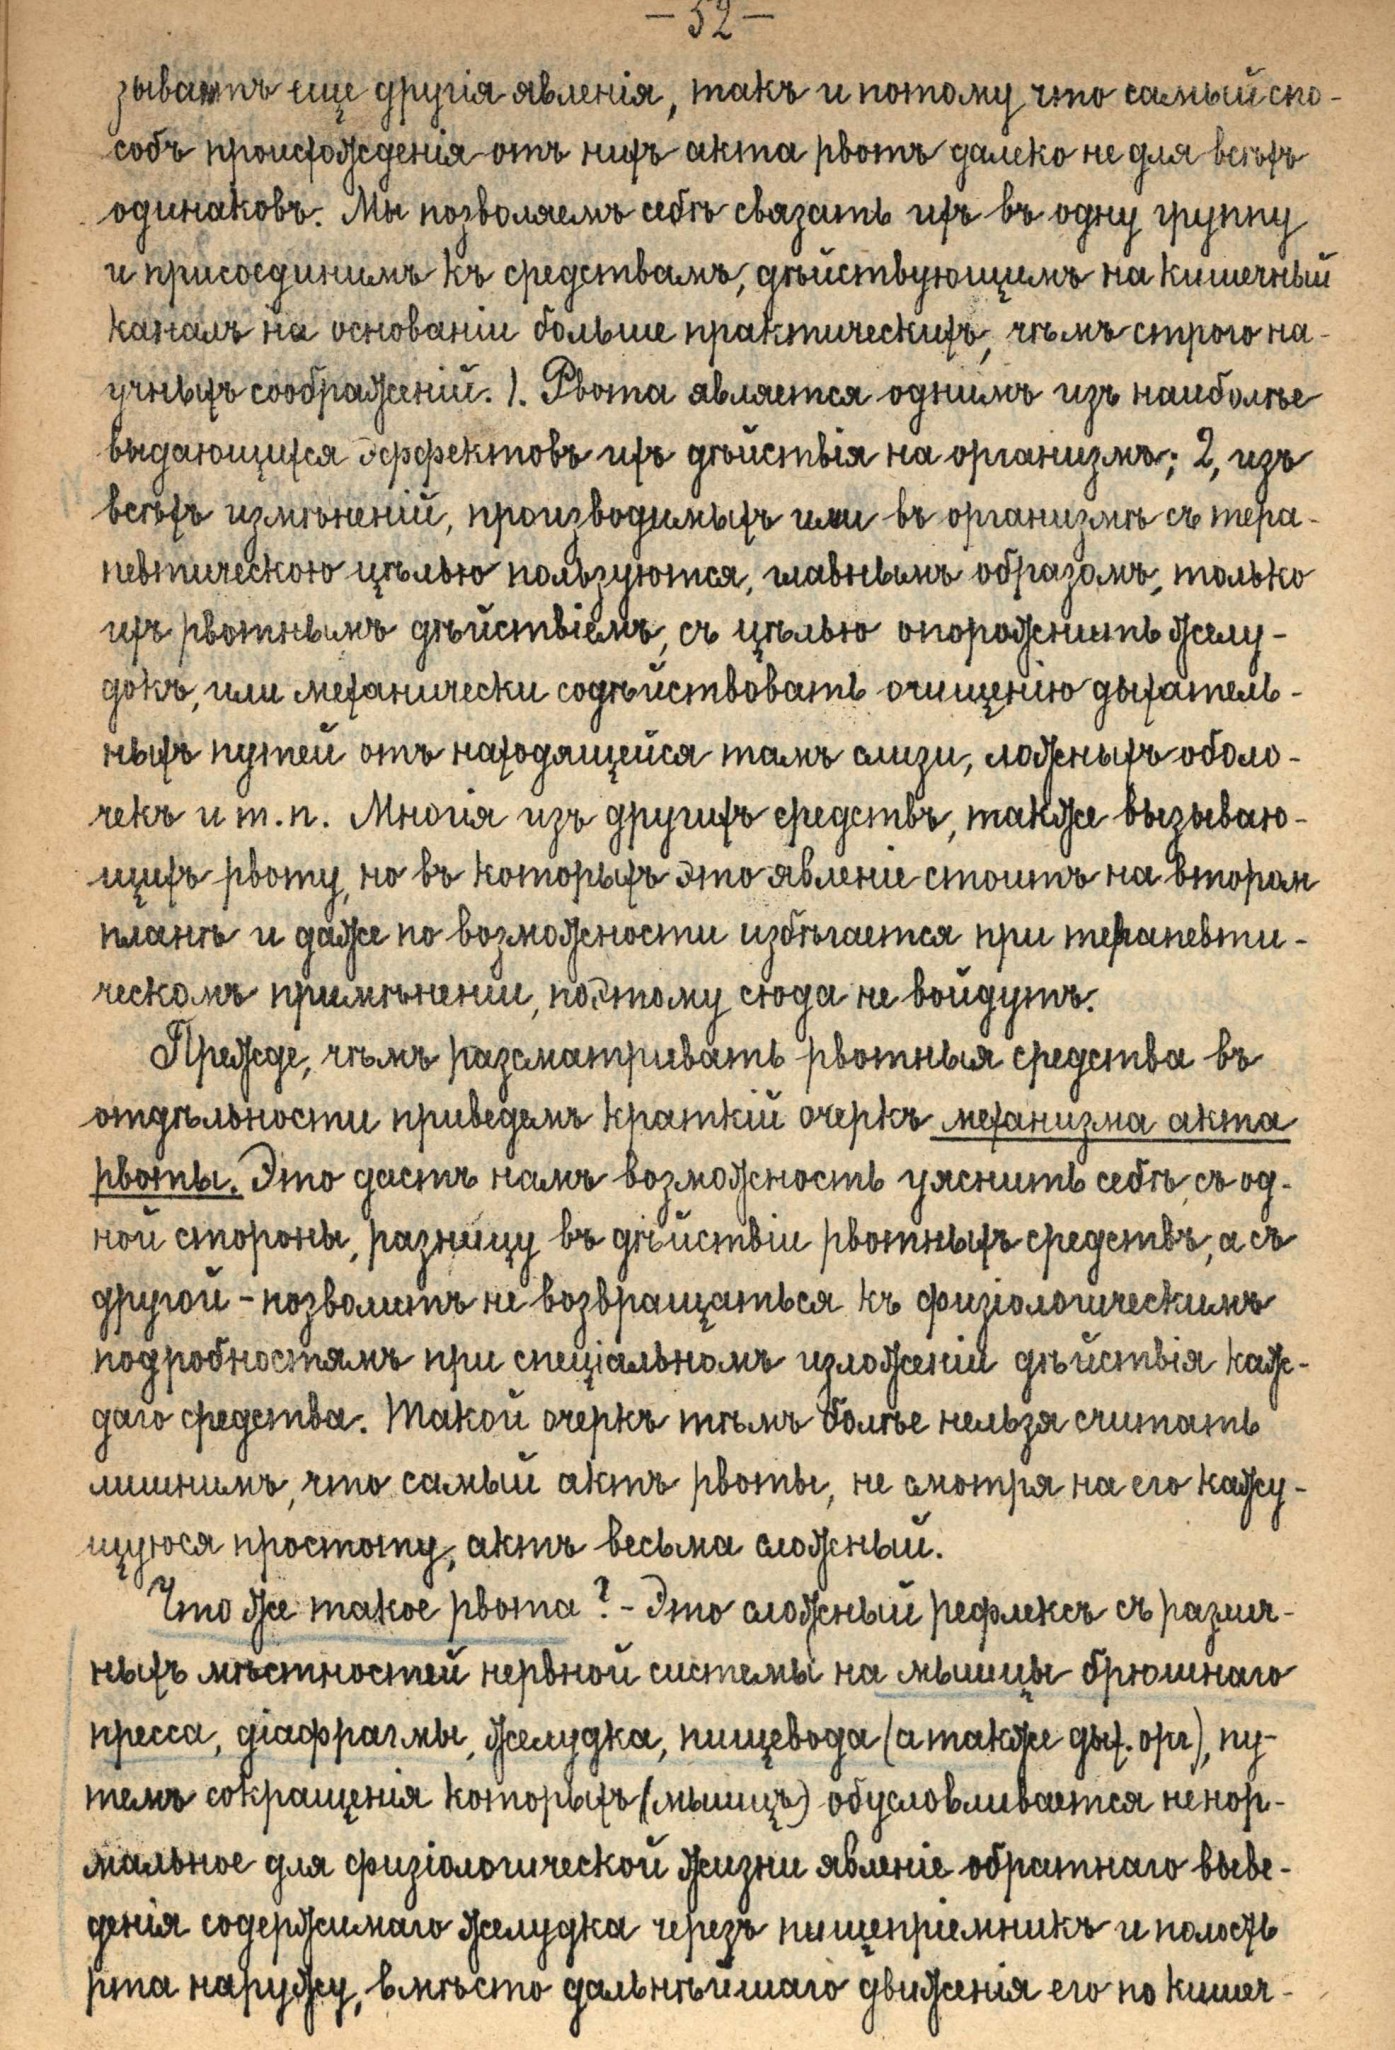 — 52 —
зываютъ еще другія явленія, такъ и потому что самый спо-
собъ происхожденія отъ нихъ акта рвотъ далеко не для всѣхъ
одинаковъ. Мы позволяемъ себѣ связать ихъ въ одну группу
и присоединимъ къ средствамъ, дѣйствующимъ на кишечный
каналъ на основаніи больше практическихъ, чѣмъ строго на-
учныхъ соображеній. 1. Рвота является однимъ изъ наиболѣе
выдающихся эффектовъ ихъ дѣйствія на организмъ; 2, изъ
всѣхъ измѣненій, производимыхъ ими въ организмѣ съ тера-
певтическою цѣлью пользуются, главнымъ образомъ, только
ихъ рвотнымъ дѣйствіемъ, съ цѣлью опорожнить желу-
докъ, или механически содѣйствовать очищенію дыхатель-
ныхъ путей отъ находящейся тамъ слизи, ложныхъ оболо-
чекъ и т.п. Многія изъ другихъ средствъ, также вызываю-
щихъ рвоту, но въ которыхъ это явленіе стоитъ на втором
планѣ и даже по возможности избѣгается при терапевти-
ческомъ примѣненіи, поэтому сюда не войдутъ.
Прежде, чѣмъ разсматривать рвотныя средства въ
отдѣльности приведемъ краткій очеркъ механизма акта
рвоты. Это дастъ намъ возможность уяснить себѣ, съ од-
ной стороны, разницу въ дѣйствіи рвотныхъ средствъ, а съ
другой - позволитъ не возвращаться къ физіологическимъ
подробностямъ при спеціальномъ изложеніи дѣйствія каж-
даго средства. Такой очеркъ тѣмъ болѣе нельзя считать
лишнимъ, что самый актъ рвоты, не смотря на его кажу-
щуюся простоту, актъ весьма сложный.
Что же такое рвота? - Это сложный рефлексъ съ различ-
ныхъ мѣстностей нервной системы на мышцы брюшнаго
пресса, діафрагмы, желудка, пищевода (а также дых. орг), пу-
темъ сокращенія которыхъ (мышцъ) обусловливается ненор-
мальное для физіологической жизни явленіе обратнаго выве-
денія содержимаго желудка черезъ пищепріемникъ и полость
рта наружу, вмѣсто дальнѣйшаго движенія его по кишеч-